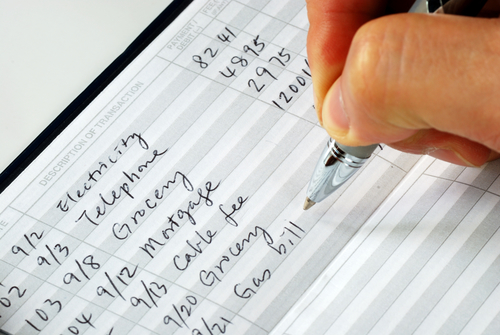 PAYMENT/
DEBIT
DESCRIPTION OF TRANSACTION
9/2 Electricity 82 41
02 9/3 Telephone 48 95
103 9/8 Grocery 29 75
04 9/12 Mortgage 1200
9/13 Cable fee
9/20 Grocery
9/21 Gas bill